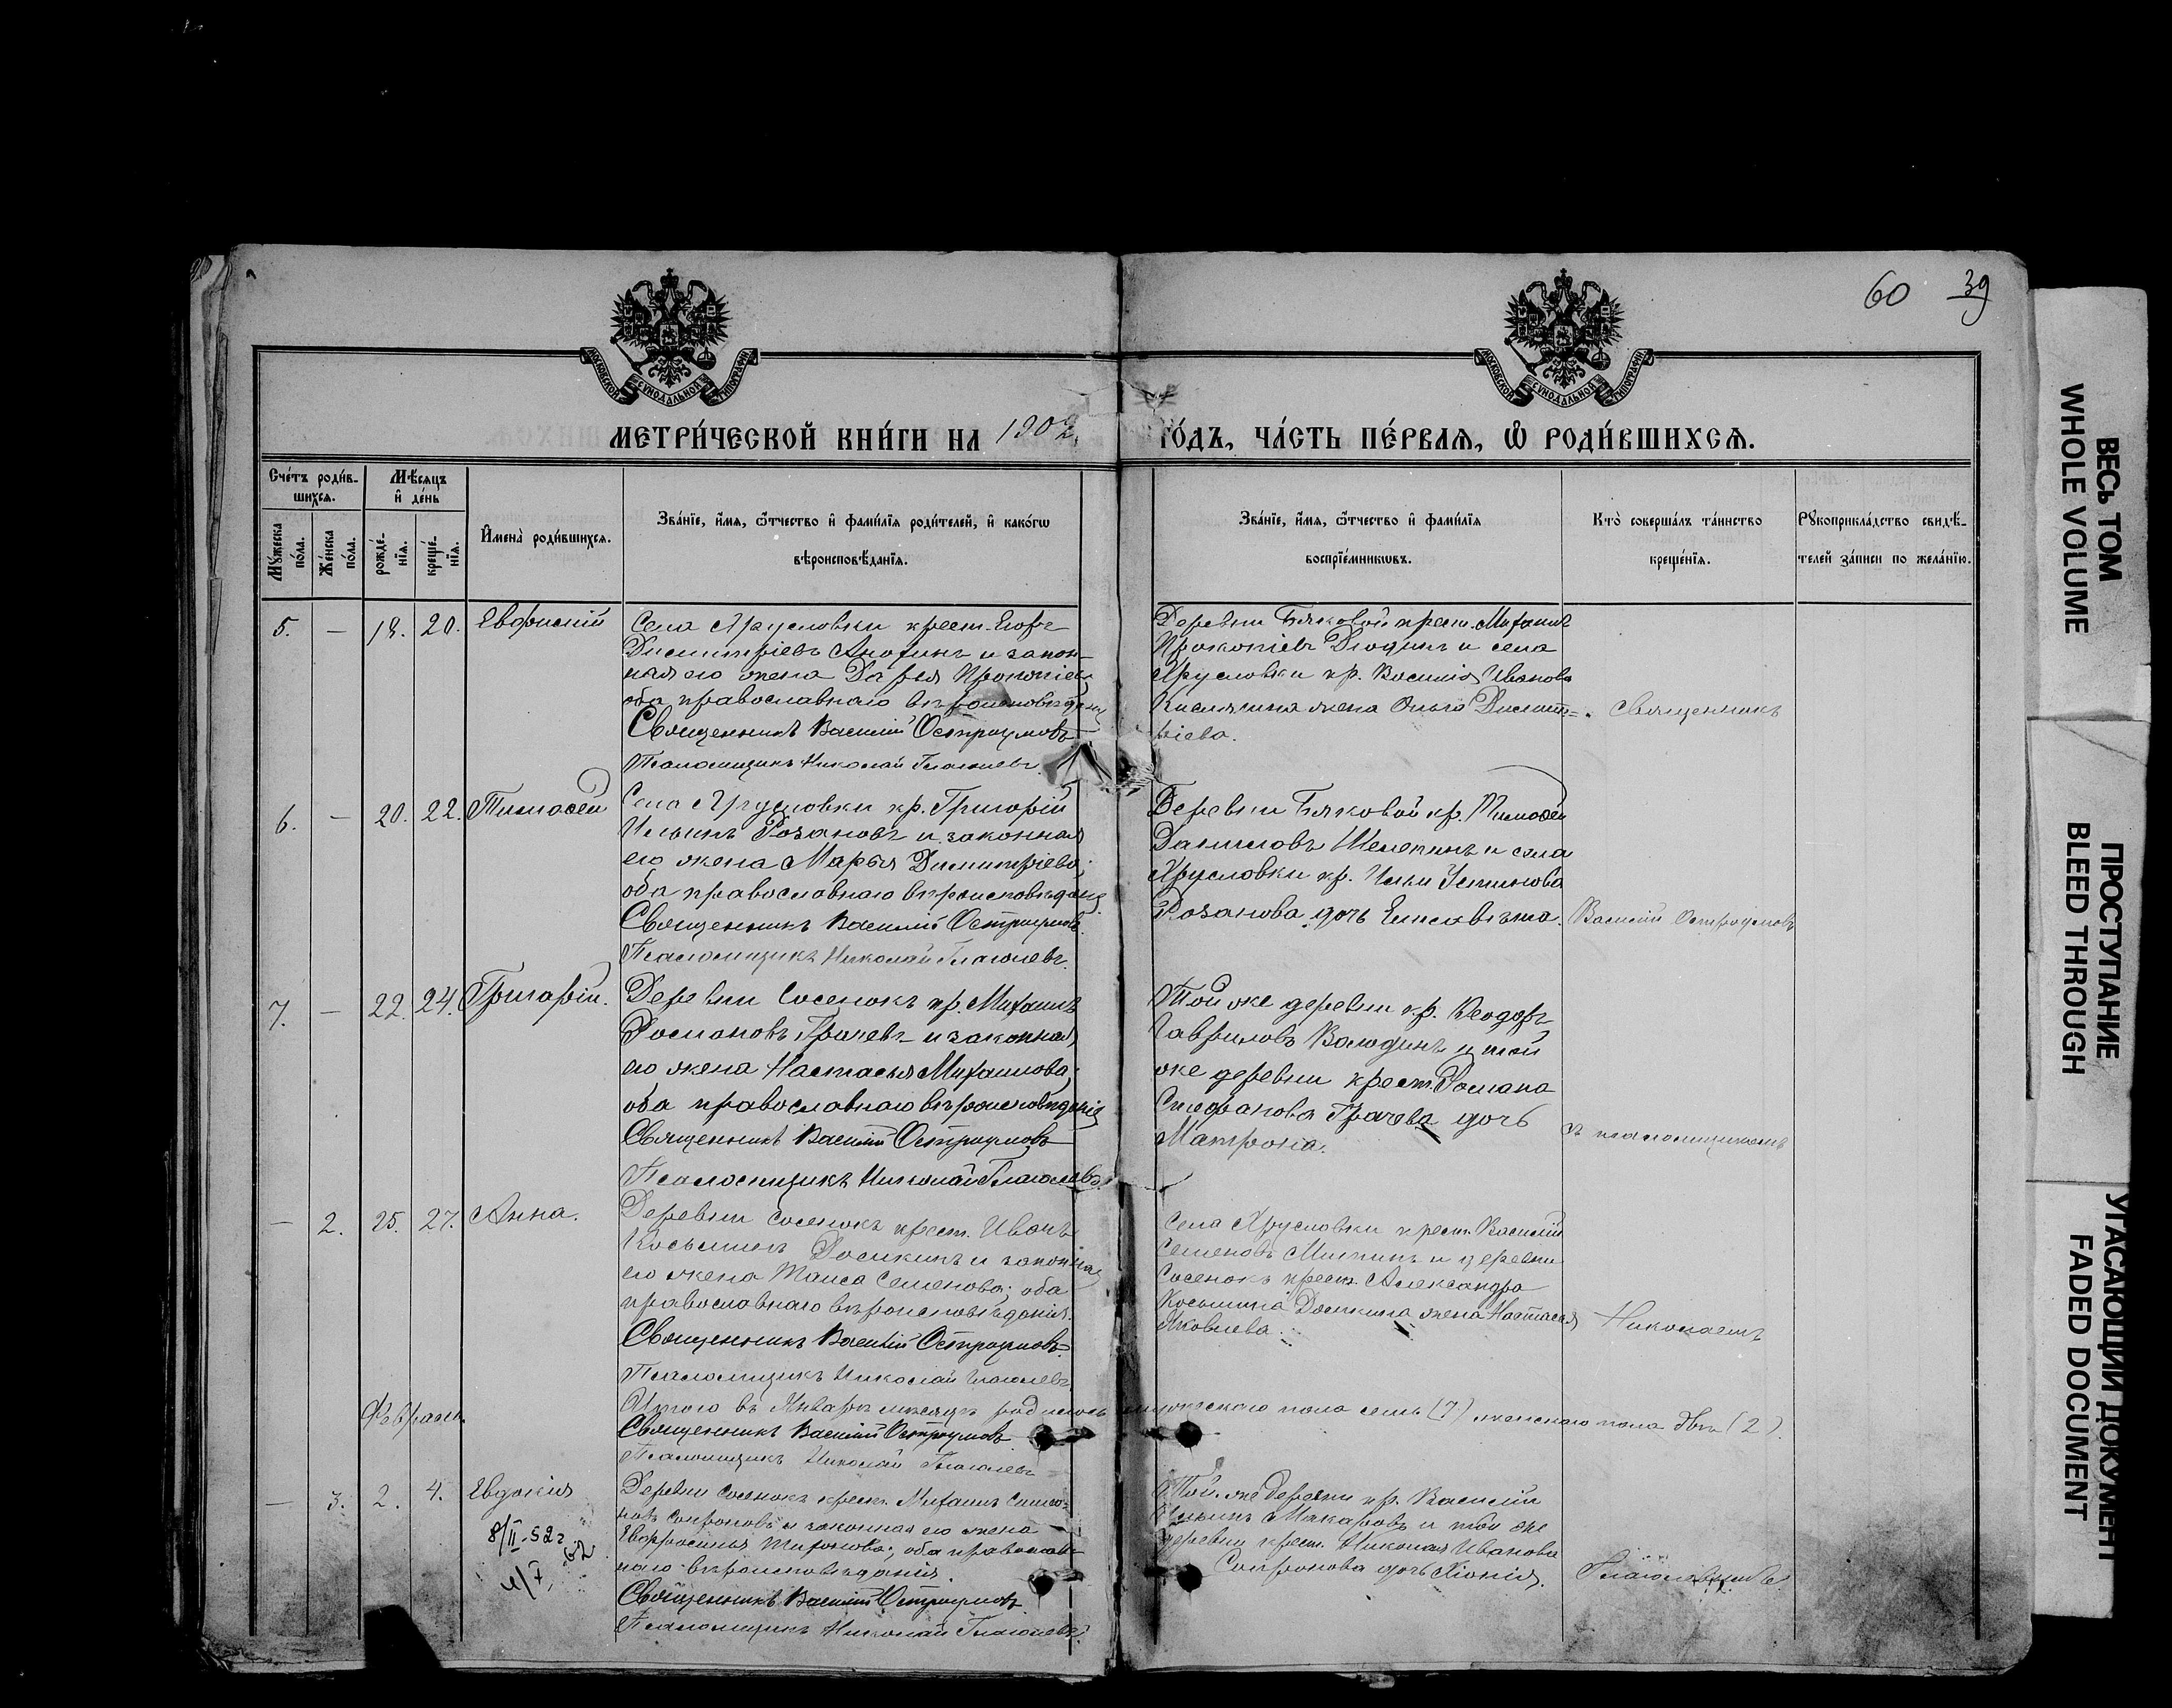 60 39
МОСКОВСКОЙ СУНОДАЛЬНОЙ ТИПОГРАФІИ
МОСКОВСКОЙ СУНОДАЛЬНОЙ ТИПОГРАФІИ
МЕТРИ́ЧЕСКОЙ КНИ́ГИ НА 1902 ГО́ДЪ, ЧА́СТЬ ПЕ́РВАѦ, Ѡ РОДИ́ВШИХСѦ.
Сче́тъ роди́в-
шихсѧ.
Мꙋ́жеска по́ла.
Же́нска по́ла.
Мѣ́сѧцъ
и҆ де́нь
рожде́-
нїѧ.
креще́-
нїѧ.
И҆мена̀ роди́вшихсѧ.
Зва́нїе, и҆́мѧ, ѻ҆́тчество и҆ фами́лїѧ роди́телей, и҆ како́гѡ
вѣроисповѣ́данїѧ.
Зва́нїе, и҆́мѧ, ѻ҆́тчество и҆ фами́лїѧ
воспрїе́мникѡвъ.
Кто̀ соверша́лъ та́инство
креще́нїѧ.
Рꙋкоприкла́дство свидѣ́-
телей за́писи по жела́нїю.
5. — 18. 20. Евфимій
Села Хрусловки крест. Егоръ
Димитріевъ Анохинъ и закон-
ная его жена Дарья Прокопіева
оба православнаго вѣроисповѣданія
Священникъ Василій Остроумовъ
Псаломщикъ Николай Глаголевъ
Деревни Бяковой крест. Михаилъ
Прокопіевъ Дюдинъ и села
Хрусловки кр. Василія Иванова
жена Ольга Димит=
ріева.
Священникъ
6. — 20. 22. Тимоѳей
Села Хрусловки кр. Григорій
Ильинъ Розановъ и законная
его жена Марья Димитріева;
оба православнаго вѣроисповѣданія
Священникъ Василій Остроумовъ.
Псаломщикъ Николай Глаголевъ.
Деревни Бяковой кр. Тимоѳей
Даниловъ Шелепинъ и села
Хрусловки кр. Ильи Устинова
Розанова дочь Елисавета.
Василій Остроумовъ
7. — 22. 24. Григорій.
Деревни Сосенокъ кр. Михаилъ
Романовъ Грачевъ и законная
его жена Настасья Михаилова;
оба православнаго вѣроисповѣданія
Священникъ Василій Остроумовъ
Псаломщикъ Николай Глаголевъ.
Той же деревни кр. Ѳеодоръ
Гавриловъ Володинъ и той
же деревни крест. Романа
Стефанова Грачева дочь
Матрона.
съ псаломщикомъ
— 2. 25. 27. Анна.
Деревни Сосенокъ крест. Иванъ
Косьминъ и законная
его жена Таиса Семенова; оба
православнаго вѣроисповѣданія.
Священникъ Василій Остроумовъ.
Псаломщикъ Николай Глаголевъ
Села Хрусловки крест. Василій
Семеновъ и деревни
Сосенокъ крест. Александра
Косьмина жена Настасья
Яковлева.
Николаемъ
Итого въ Январѣ мѣсяцѣ родилось мужескаго пола семь (7) женскаго пола двѣ (2).
Священникъ Василій Остроумовъ
Псаломщикъ Николай Глаголевъ
Февраль.
— 3. 2. 4. Евдокія
8/II-52 г.
Деревни Сосенокъ крест. Михаилъ Симео-
новъ Сопроновъ и законная его жена
Евфросинья Тихонова; оба православ-
наго вѣроисповѣданія.
Священникъ Василій Остроумовъ
Псаломщикъ Николай Глаголевъ.
Той же деревни кр. Василій
Ильинъ Макаровъ и той же
деревни крест. Николая Иванова
Сопронова дочь Хіонія.
Глаголевымъ.
ВЕСЬ ТОМ
WHOLE VOLUME
ПРОСТУПАНИЕ
BLEED THROUGH
УГАСАЮЩИЙ ДОКУМЕНТ
FADED DOCUMENT